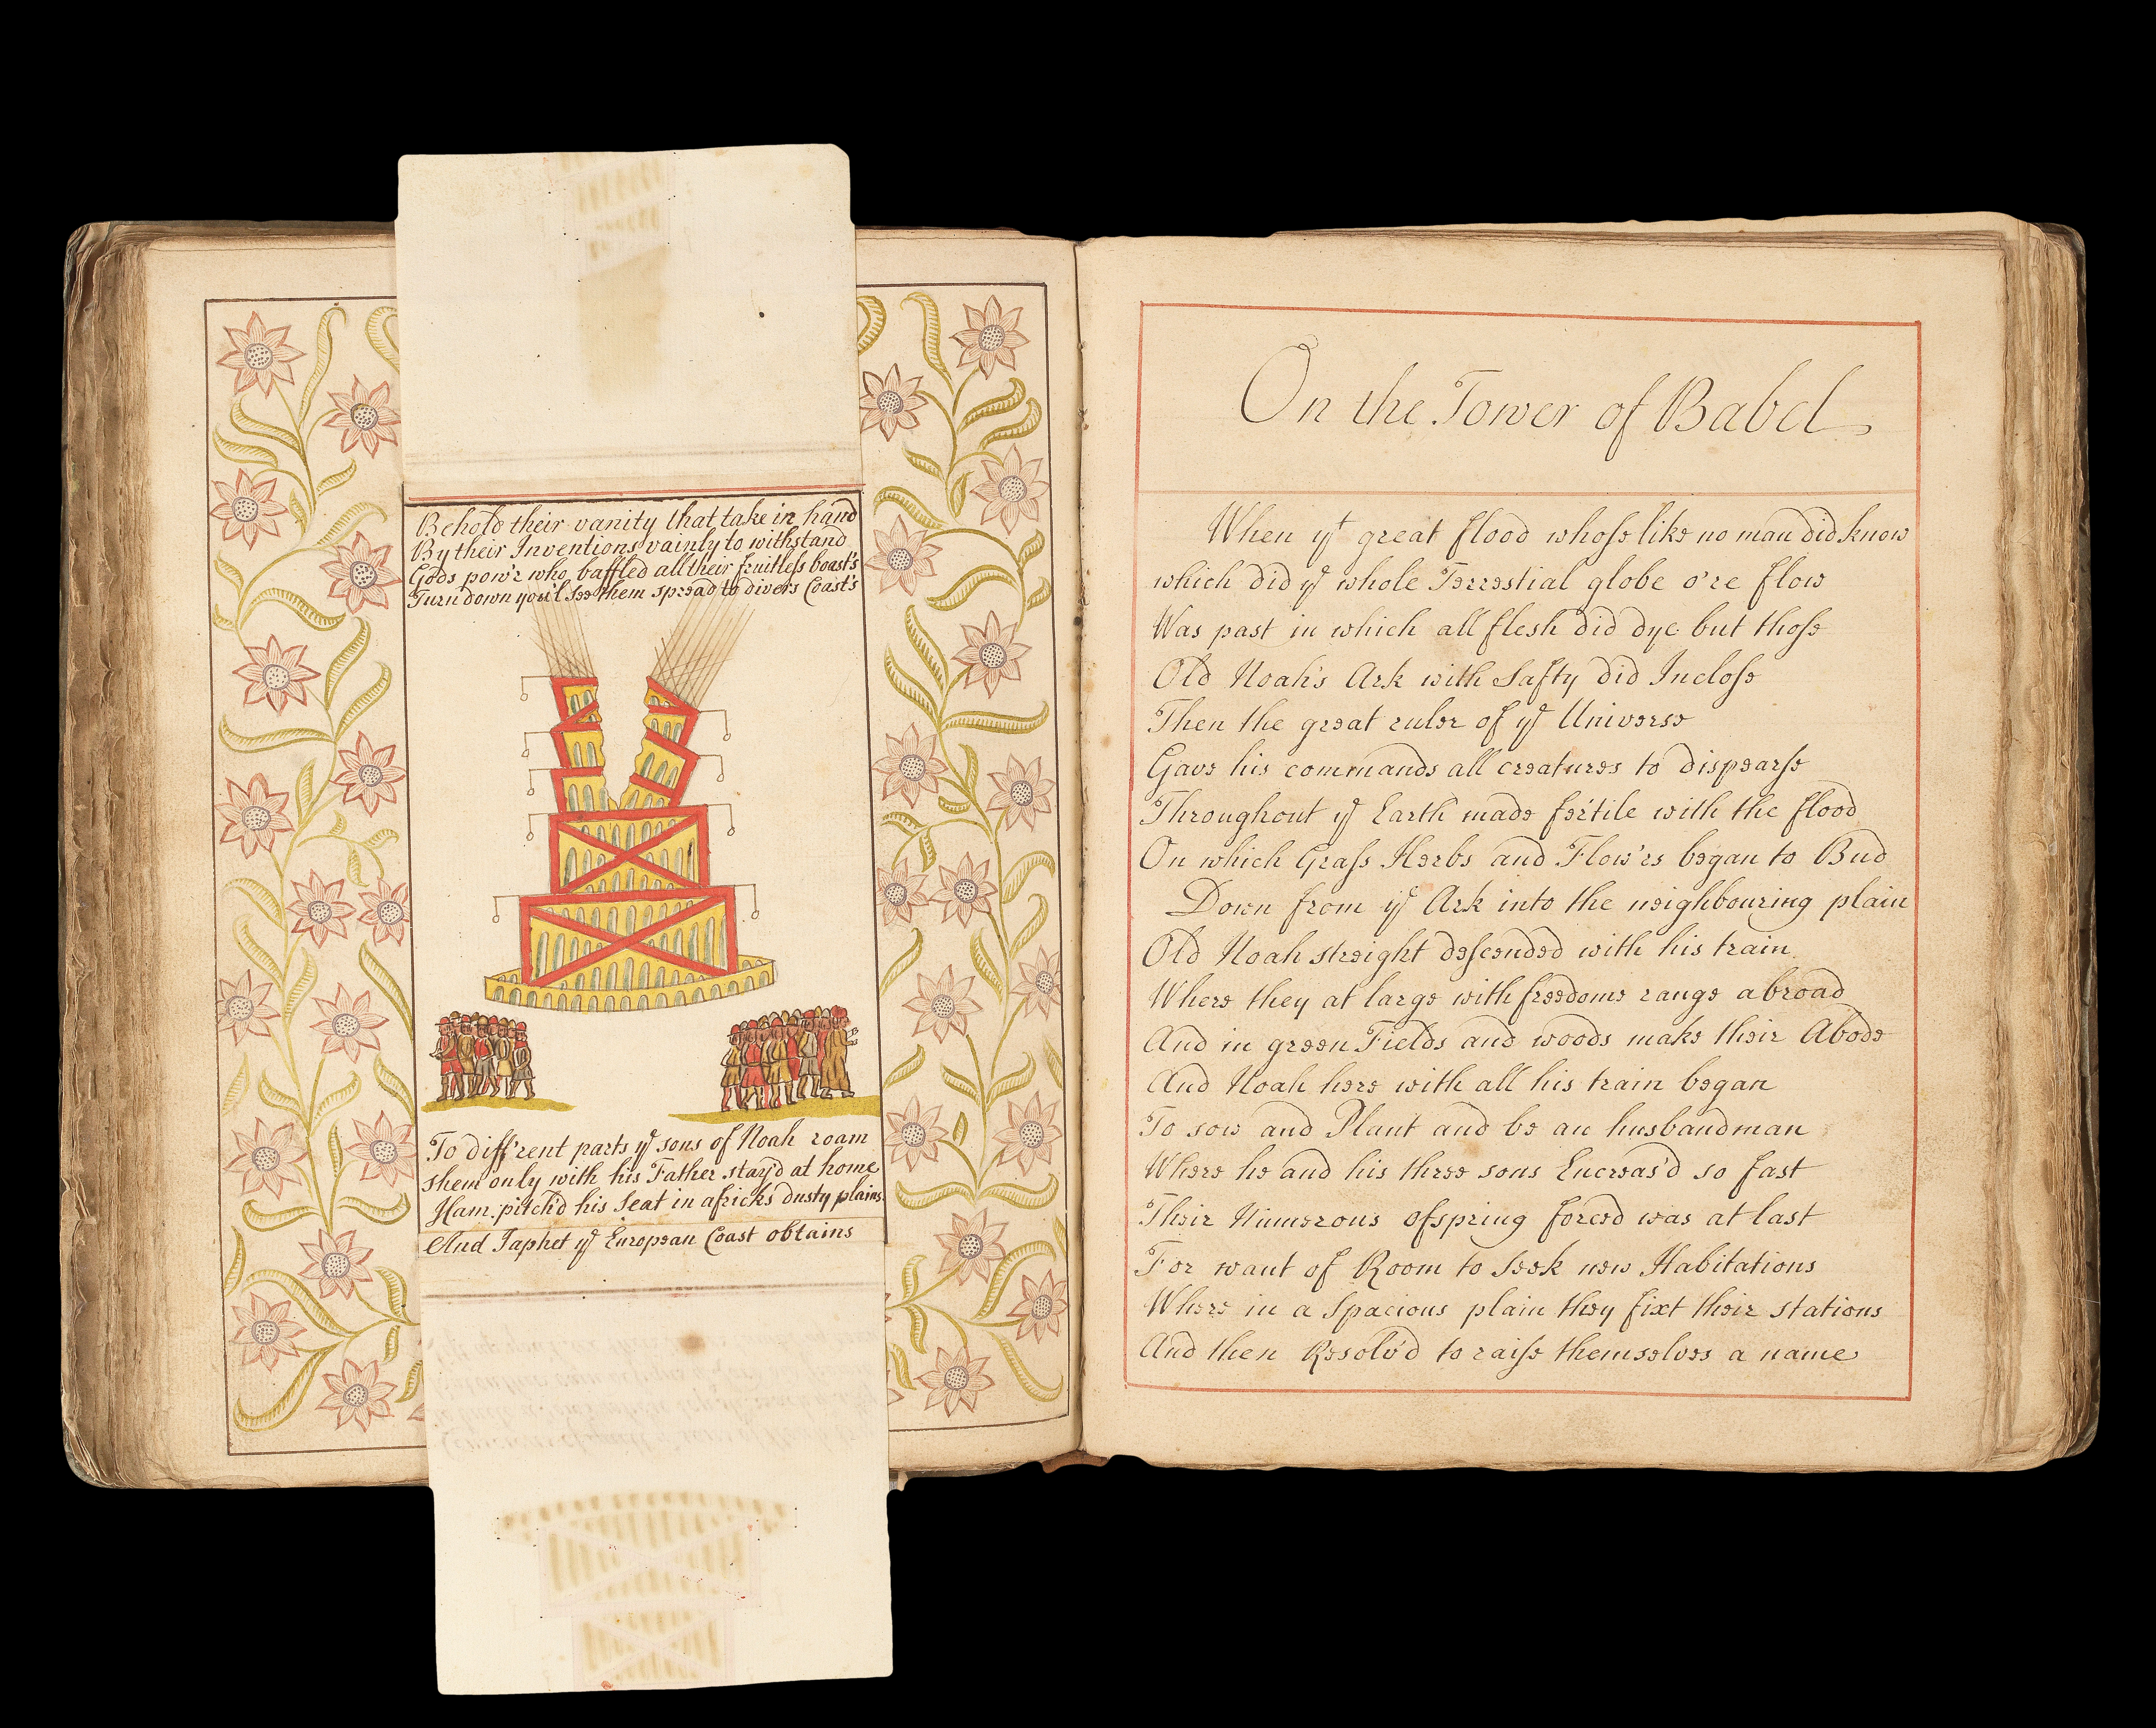 Behold their vanity that take in hand
By their Inventions vainly to withstand
Gods pow'r who baffled all their fruitleſs boast's
Turn down you'l See them spread to divers Coast's
To diff'rent parts yͤ sons of Noah roam
Shem only with his Father stay'd at home
Ham pitch'd his Seat in africks dusty plains
And Japhet yͤ European Coast obtains
On the Tower of Babel
When yͭ great flood whoſe like no man did know
which did yͤ whole Terrestial globe o're flow
Was past in which all flesh did dye but thoſe
Old Noah's Ark with Safty did Incloſe
Then the great ruler of yͤ Universe
Gave his commands all creatures to dispearſe
Throughout yͤ Earth made fertile with the flood
On which Graſs Herbs and Flow'rs began to Bud
Down from yͤ Ark into the neighbouring plain
Old Noah streight deſcended with his train
Where they at large with freedome range abroad
And in green Fields and woods make their Abode
And Noah here with all his train began
To sow and Plant and be an husbandman
Where he and his three sons Encreas'd so fast
Their Numerous ofspring forced was at last
For want of Room to Seek new Habitations
Where in a Spacious plain they fixt their stations
And then Resolv'd to raiſe themselves a name